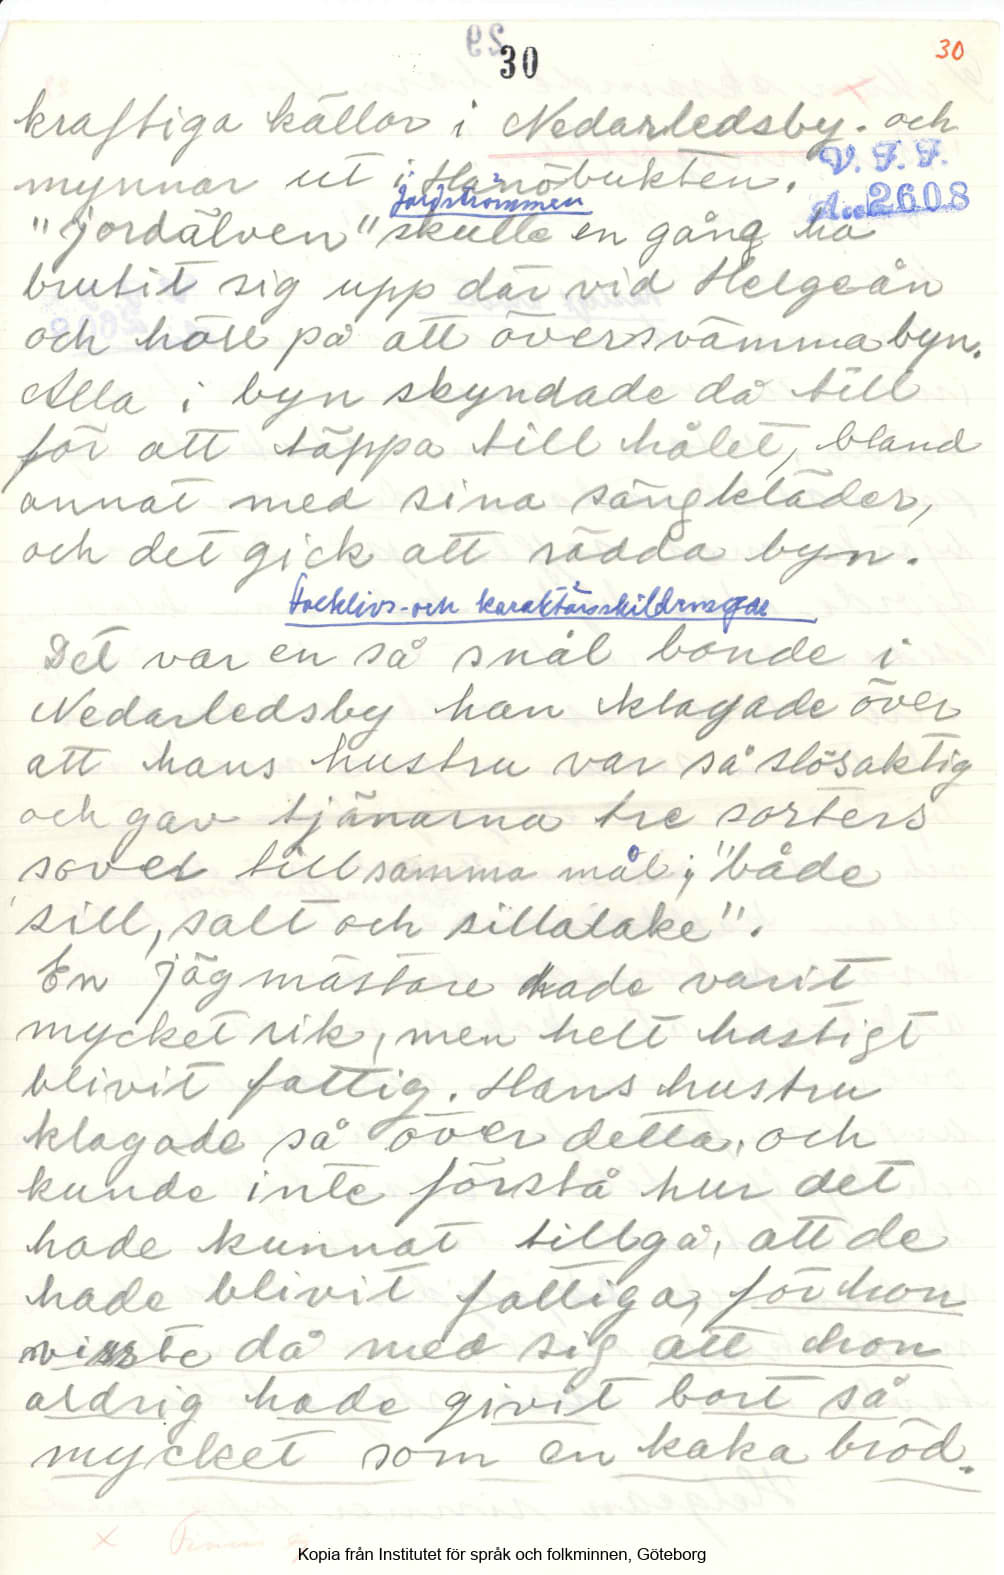 30
30
kraftiga källor i Nedarledsby. och
V. F. F.
mynnar ut i Hanöbukten.
Acc. 2608
Jordströmmen
"jordälven" skulle en gång ha
brutit sig upp där vid Helgeån
och höll på att översvämma byn.
Alla i byn skyndade då till
för att täppa till hålet, bland
annat med sina sängkläder,
och det gick att rädda byn.
Folklivs- och karaktärsskildringar
Det var en så snål bonde i
Nedarledsby han klagade över
att hans hustru var så slösaktig
och gav tjänarna tre sorters
sovel till samma mål; "både
sill, salt och sillalake".
En jägmästare hade varit
mycket rik, men helt hastigt
blivit fattig. Hans hustru
klagade så över detta, och
kunde inte förstå hur det
hade kunnat tillgå, att de
hade blivit fattiga, för hon
visste då med sig att hon
aldrig hade givit bort så
mycket som en kaka bröd.
Kopia från Institutet för språk och folkminnen, Göteborg